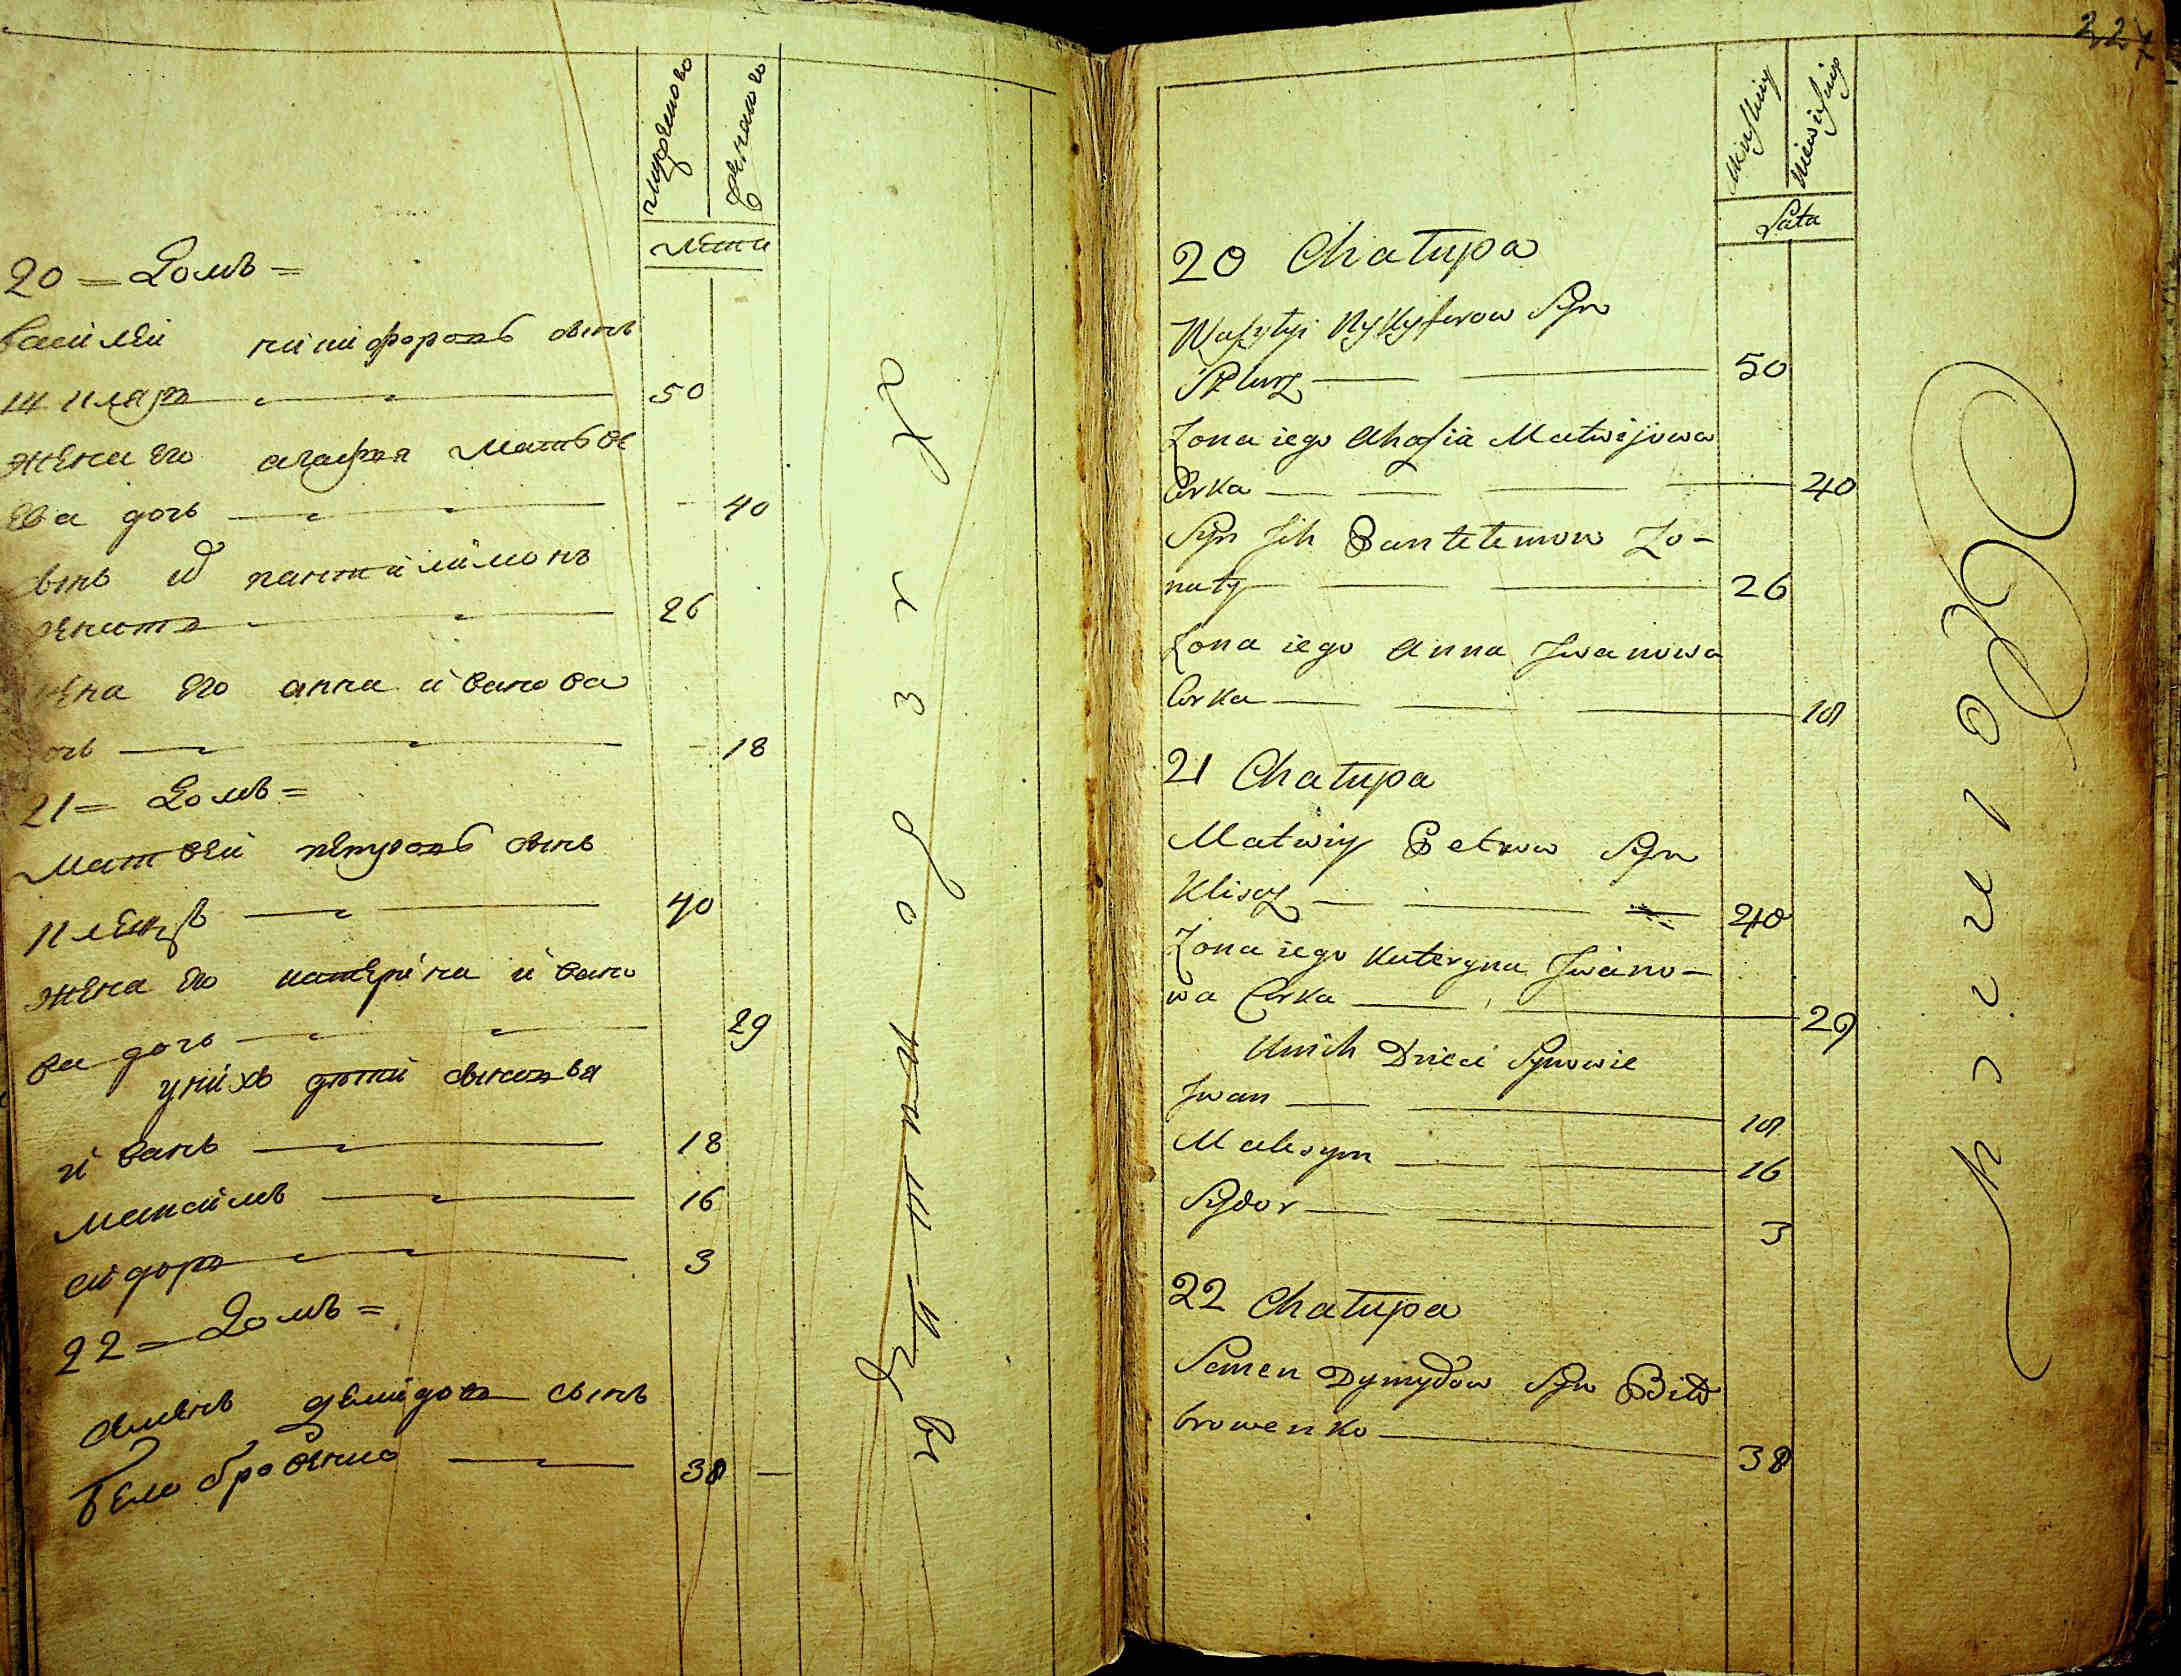 мужеска
женска
лета
20 = Домъ =
василей никифоровъ сынъ
шкляръ 50
жена его агафия матвѣ
ева дочь 40
сынъ их пантилимонъ
женатъ 26
жена его анна ивановa
дочь 18
21 = Домъ =
матвей петровъ сынъ
40
жена его катерина ивано
ва дочь 29
у нихъ дети сыновья
иванъ 18
максимъ 16
сидоръ 3
22 = Домъ =
семенъ демидовъ сынъ
белобровенко 38
227
Męskiey
Niewieściey
Lata
20 Chałupa
Wasylyi Nykyforow Syn
50
Zona iego Ahafia Matwijowa
Corka 40
Syn Jch Pantelemon Zo-
naty 26
Zona iego Anna Jwanowa
Corka 18
21 Chałupa
Matwiy Petrow Syn
40
Zona iego Kateryna Jwano-
wa Corka 29
Unich Dzieci Synowie
Jwan 18
Maksym 16
Sydor 3
22 Chałupa
Semen Dymydow Syn Biło
browenko 38